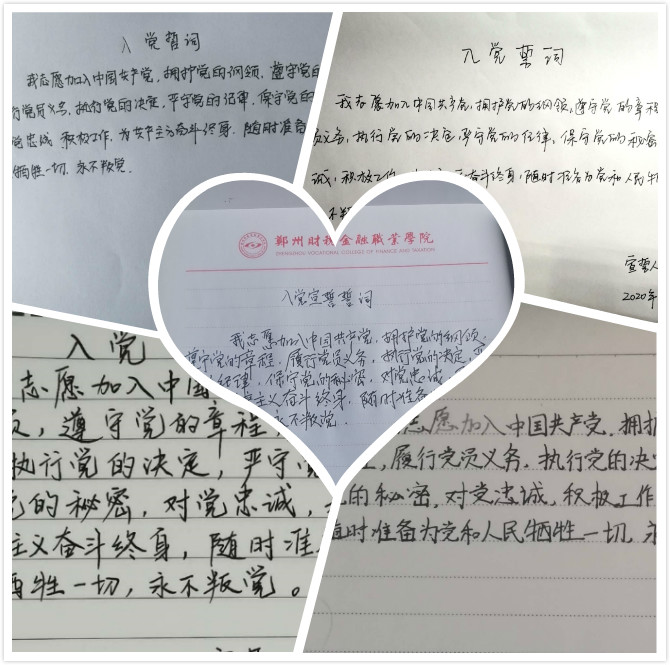 入党誓词
我志愿加入中国共产党，拥护党的纲领，遵守党的
行党员义务，执行党的决定，严守党的纪律，保守党的
党忠诚 积极工作，为共产主义奋斗终身，随时准备
牺牲一切，永不叛党．
入党誓词
我志愿加入中国共产党，拥护党的纲领，遵守党的章程
员义务，执行党的决定，严守党的纪律，保守党的秘密
诚，积极工作，奋斗终身，随时准备为党和人民牺
不叛
宣誓人
2020年
鄭州財稅金融職業學院
ZHENGZHOU VOCATIONAL COLLEGE OF FINANCE AND TAXATION
入党宣誓誓词
我志愿加入中国共产党，拥护党的纲领
遵守党的章程，履行党员义务，执行党的决定，严
纪律，保守党的秘密，对党忠诚，
主义奋斗终身，随时准备
永不叛党．
入党
志愿加入中国
遵守党的章程，
执行党的决定，严守党
党的秘密，对党忠诚，
主义奋斗终身，随时准
牺牲一切，永不叛党。
志愿加入中国共产党，拥护
履行党员义务，执行党的决定
的秘密，对党忠诚，积极工作
随时准备为党和人民牺牲一切，永